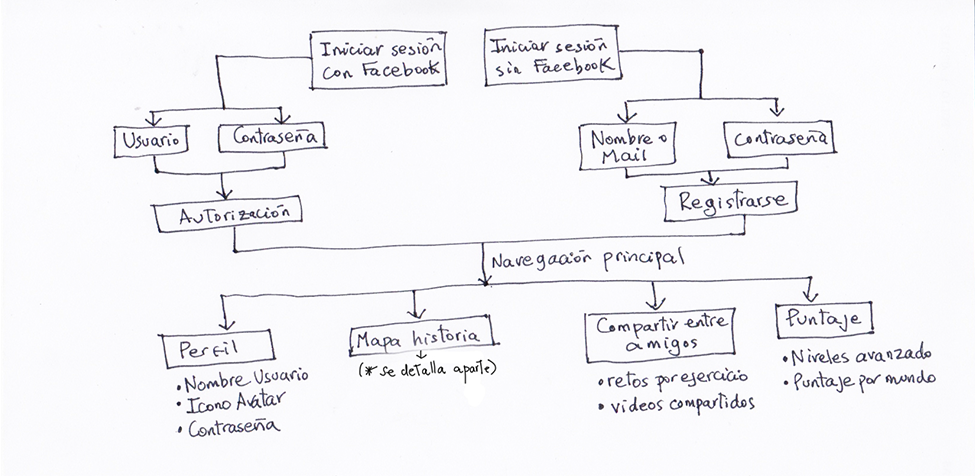 Iniciar sesión
con Facebook
Iniciar sesión
sin Facebook
Usuario
Contraseña
Nombre o
Mail
Contraseña
Autorización
Registrarse
Navegación principal
Perfil
• Nombre Usuario
• Icono Avatar
• Contraseña
Mapa historia
(* se detalla aparte)
Compartir entre
amigos
• retos por ejercicio
• videos compartidos
Puntaje
• Niveles avanzado
• Puntaje por mundo